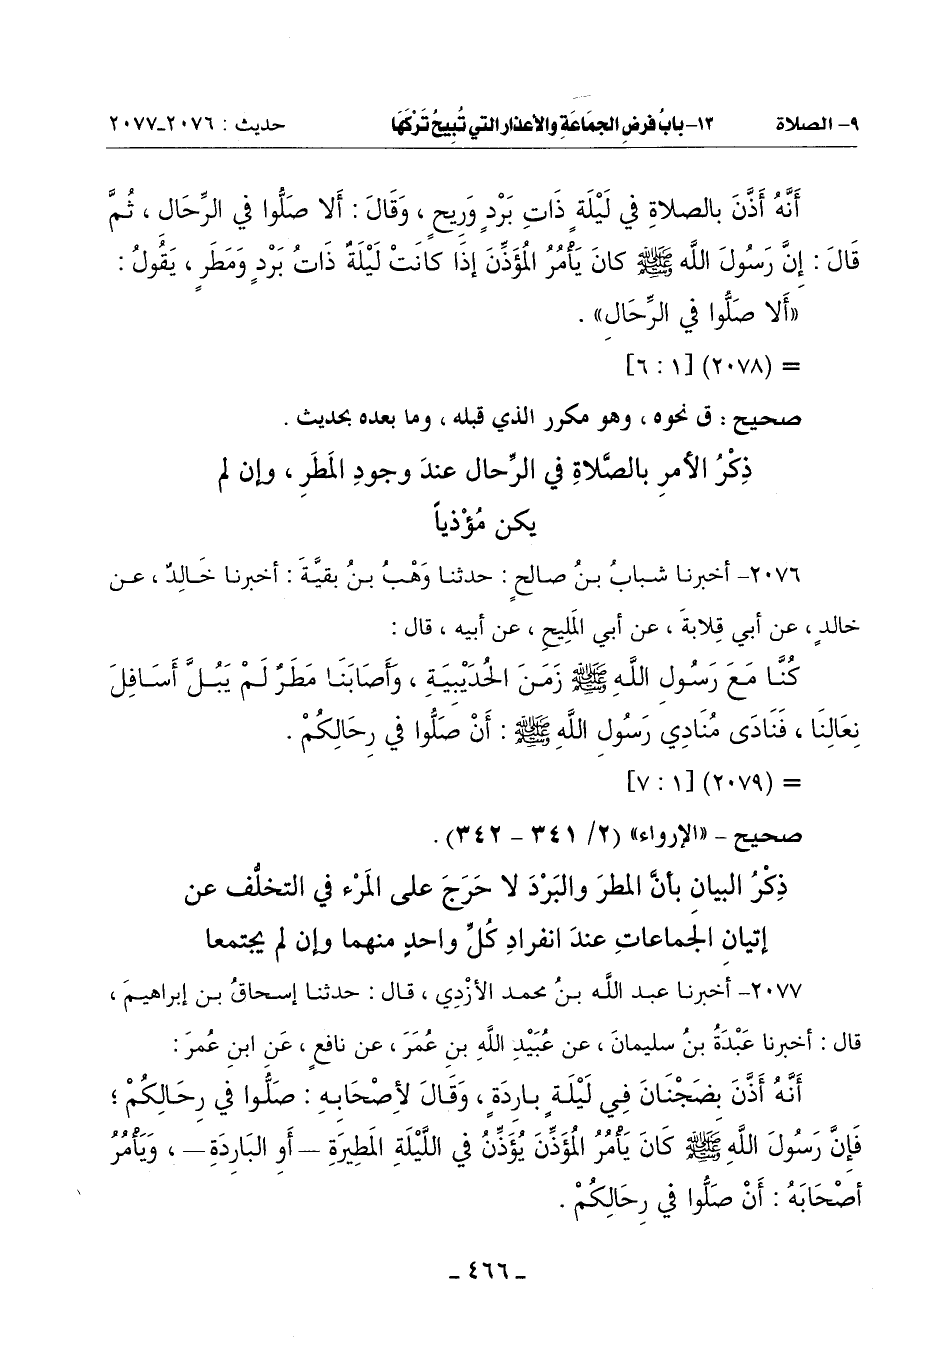 ٩- الصلاة ١٢- بابُ فرضِ الجمَاعَةِ والأعذار التي تُبيحُ تَرْكَهَا حديث : ٢٠٧٦-٢٠٧٧
أَنَّهُ أَذَّنَ بالصلاةِ في لَيْلَةٍ ذَاتِ بَرْدٍ وَرِيحٍ ، وَقَالَ : أَلا صَلُّوا في الرِّحَالِ ، ثُمَّ
قَالَ : إِنَّ رَسُولَ اللَّه ﷺ كانَ يَأْمُرُ الْمُؤَذِّنَ إذَا كانَتْ لَيْلَةٌ ذَاتُ بَرْدٍ ومَطَرٍ ، يَقُولُ :
«أَلا صَلُّوا في الرِّحَالِ» .
= (٢٠٧٨) [١ : ٦]
صحيح : ق نحوه ، وهو مكرر الذي قبله ، وما بعده بحديث .
ذِكْرُ الأمرِ بالصَّلاةِ في الرِّحال عندَ وجودِ المَطَرِ ، وإن لم
يكن مُؤْذياً
٢٠٧٦- أخبرنا شبابُ بنُ صالحٍ : حدثنا وَهْبُ بنُ بقيَّةَ : أخبرنا خَالدٌ ، عن
خالدٍ ، عن أبي قِلابةَ ، عن أبي المَلِيحِ ، عن أبيه ، قال :
كُنَّا مَعَ رَسُولِ اللَّهِ ﷺ زَمَنَ الحُدَيْبِيَةِ ، وَأَصَابَنَا مَطَرٌ لَمْ يَبُلَّ أَسَافِلَ
نِعَالِنَا ، فَنَادَى مُنَادِي رَسُولِ اللَّهِ ﷺ : أَنْ صَلُّوا في رِحَالِكُمْ .
= (٢٠٧٩) [١ : ٧]
صحيح - «الإرواء» (٢/ ٣٤١ - ٣٤٢) .
ذِكْرُ البيانِ بأنَّ المطرَ والبَرْدَ لا حَرَجَ على المَرْء في التخلُّف عن
إتيانِ الجماعاتِ عندَ انفرادِ كُلِّ واحدٍ منهما وإن لم يجتمعا
٢٠٧٧- أخبرنا عبد اللَّه بنُ محمد الأزْدي ، قال : حدثنا إسحاقُ بن إبراهيمَ ،
قال : أخبرنا عَبْدَةُ بنُ سليمانَ ، عن عُبَيْدِ اللَّهِ بنِ عُمَرَ ، عن نافعٍ ، عَنِ ابنِ عُمرَ :
أَنَّهُ أَذَّنَ بِضَجْنَانَ فِي لَيْلَةٍ بارِدَةٍ ، وَقَالَ لأصْحَابِهِ : صَلُّوا في رِحَالِكُمْ ؛
فَإنَّ رَسُولَ اللَّهِ ﷺ كَانَ يَأْمُرُ الْمُؤَذِّنَ يُؤَذِّنُ في اللَّيْلَةِ المَطِيرَةِ -أَو البَارِدَةِ- ، وَيَأْمُرُ
أصْحَابَهُ : أَنْ صَلُّوا في رِحَالِكُمْ .
- ٤٦٦ -